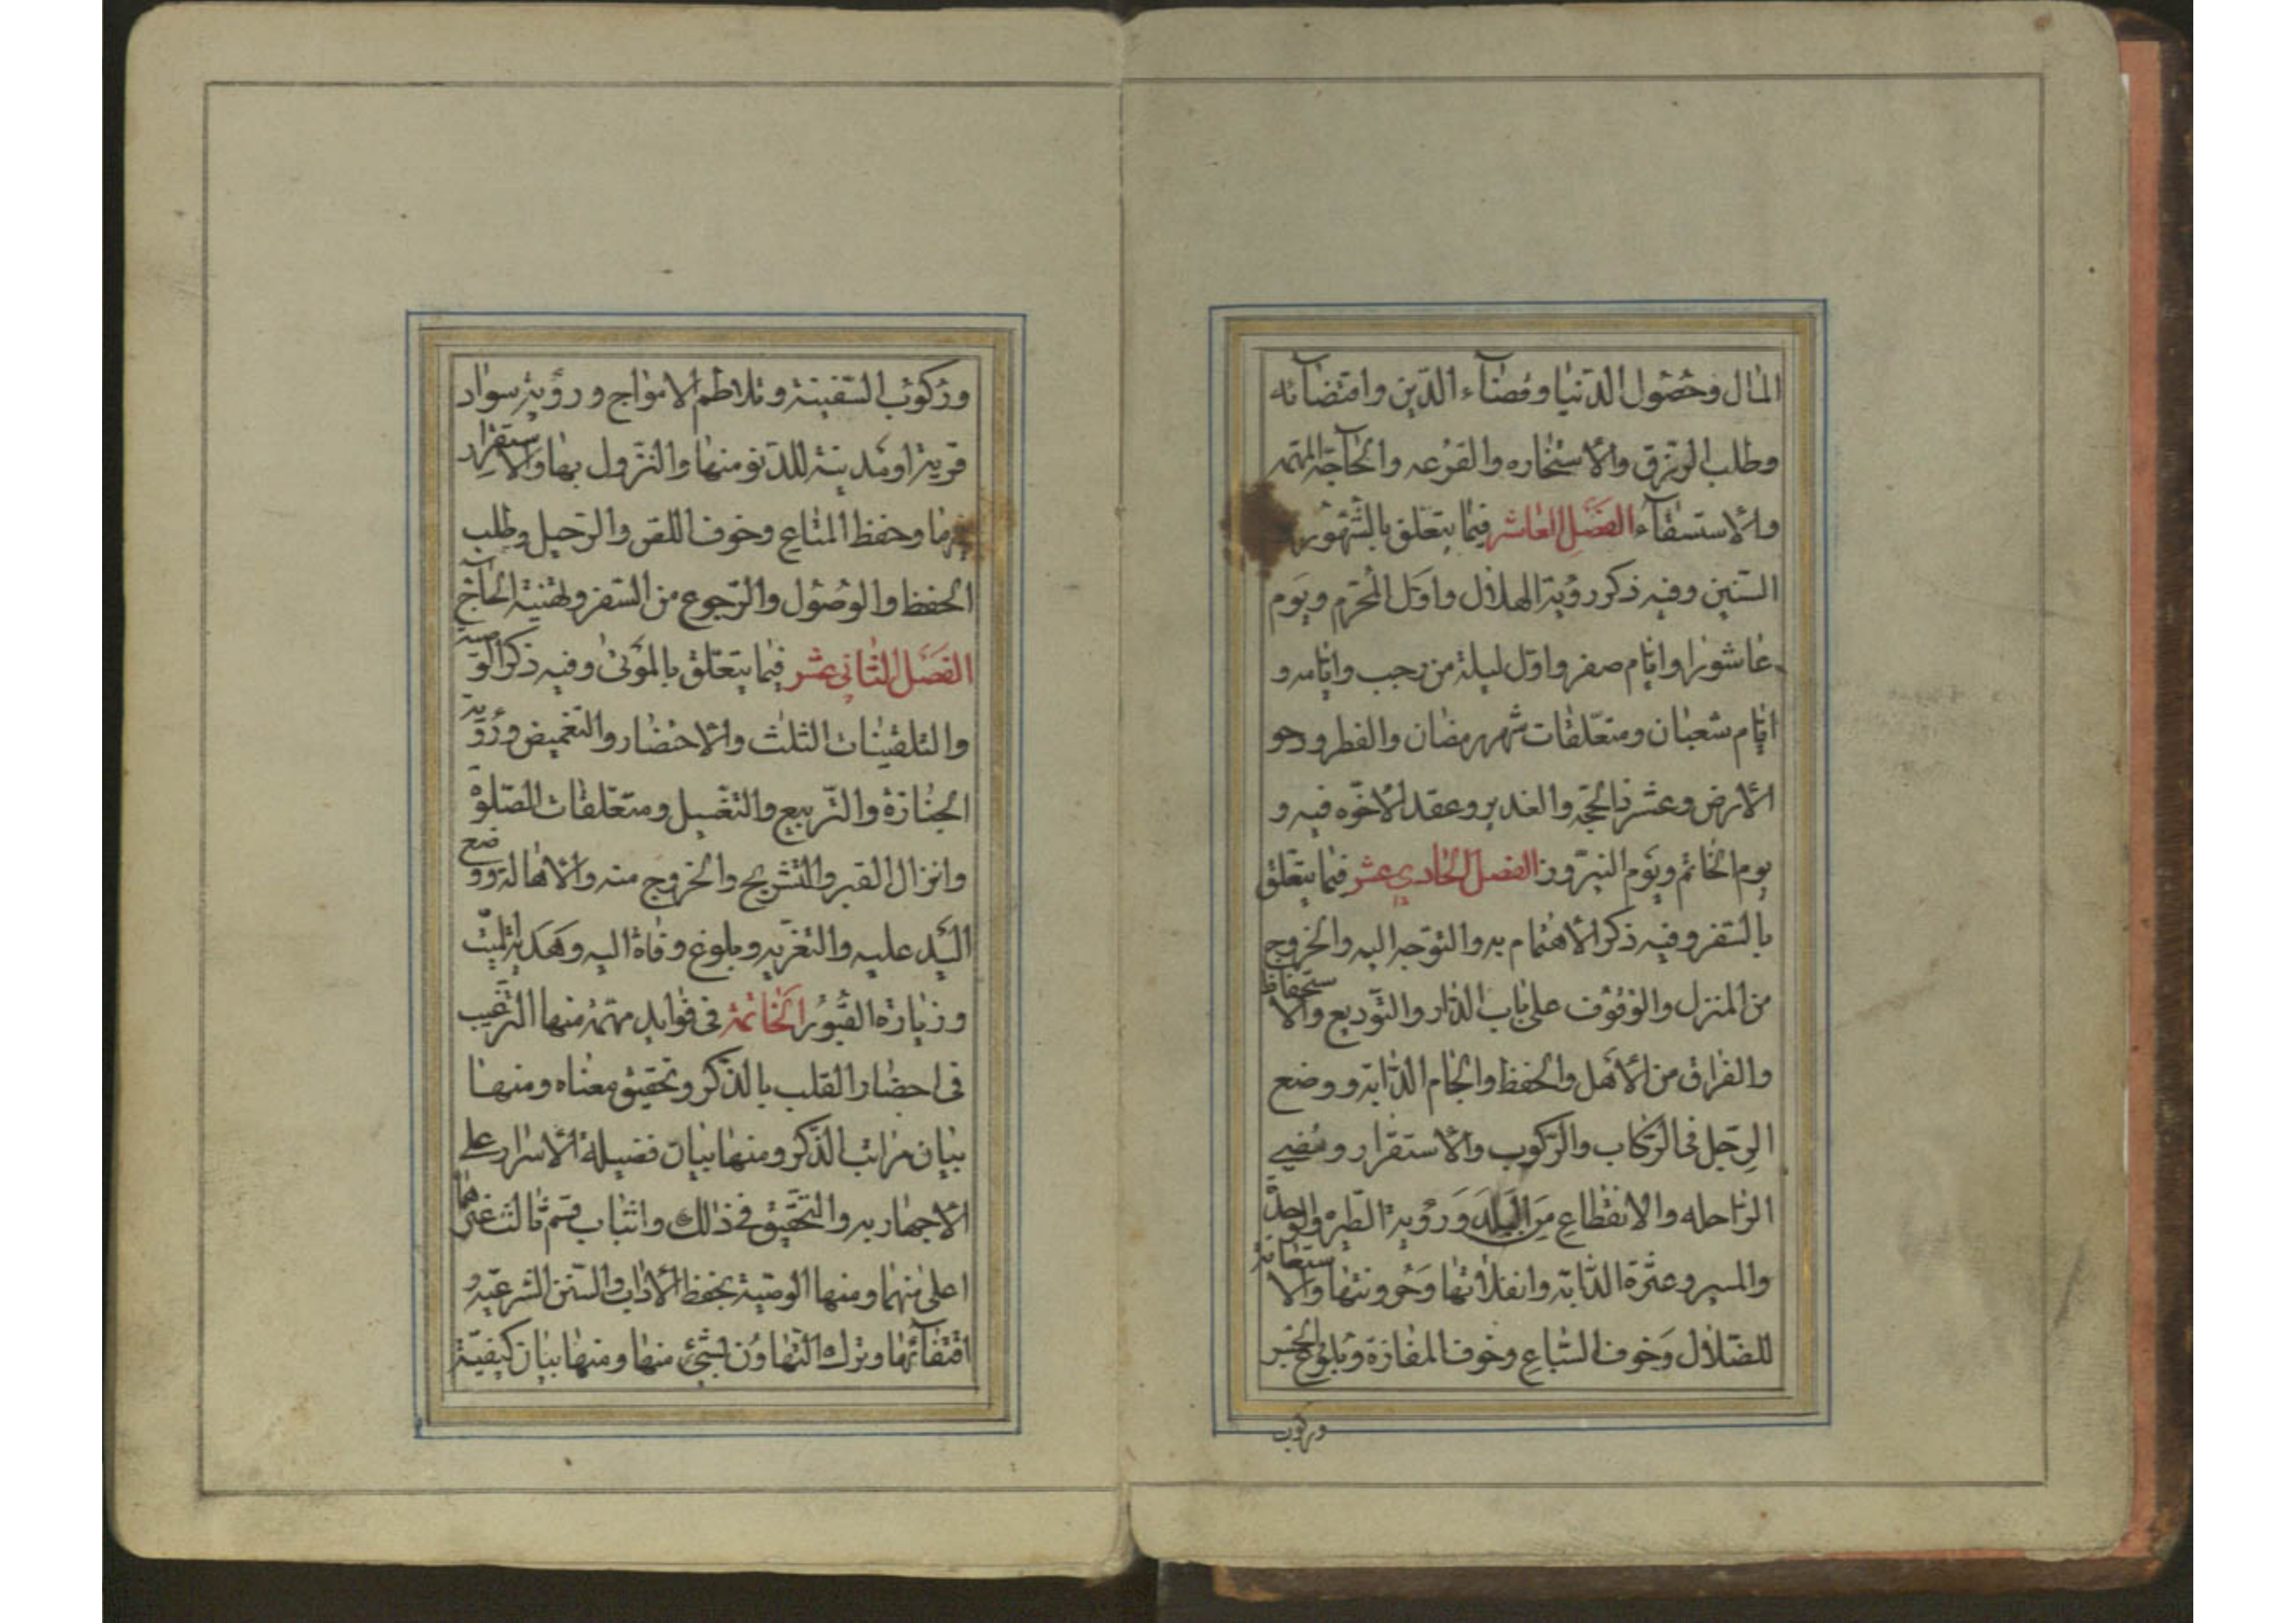 المال وحصول الدنيا وقضاء الدين واقتضائه
وطلب الرزق والاستخاره والقرعه والحاجة المهمة
والاستسقاء الفصل العاشر فيما يتعلق بالشهور و
السنين وفيه ذكر رؤية الهلال واول المحرم ويوم
عاشورا وايام صفر واول ليلة من رجب وايامه و
ايام شعبان ومتعلقات شهر رمضان والفطر ودحو
الارض وعشر ذالحجة والغدير وعقد الاخوه فيه و
يوم الخاتم ويوم النيروز الفصل الحادي عشر فيما يتعلق
بالسفر وفيه ذكر الاهتمام به والتوجه اليه والخروج
من المنزل والوقوف على باب الدار والتوديع والاستحفاظ
والفراق من الاهل والحفظ والجام الدابة ووضع
الرجل في الركاب والركوب والاستقرار ومضي
الراحله والانقطاع من البلد ورؤية الطيره
والمسير وعثرة الدابة وانفلاتها وحزونتها والاستعانة
للضلال وخوف السباع وخوف المفازة وبلوغ جسر
وركوب
وركوب السفينة وتلاطم الامواج ورؤية سواد
قرية او مدينة للدنو منها والنزول بها والاستقرار
وحفظ المتاع وخوف اللص والرحيل وطلب
الحفظ والوصول والرجوع من السفر وتهنية الحاج
الفصل الثاني عشر فيما يتعلق بالموتى وفيه ذكر الوصية
والتلقينات الثلث والاحتضار والتغميض ورؤية
الجنازة والتربيع والتغسيل ومتعلقات الصلوة
وانزال القبر والتشريج والخروج منه والاهالة ووضع
اليد عليه والتعزيه وبلوغ وفاة اليه وهدية الميت
وزيارة القبور الخاتمة في فوايد مهمة منها الترغيب
في احضار القلب بالذكر وتحقيق معناه ومنها
بيان مراتب الذكر ومنها بيان فضيلة الاسرار على
الاجهار به والتحقيق في ذالك واثبات قسم ثالث غيرهما
اعلى منهما ومنها الوصية بحفظ الاداب والسنن الشرعية و
اقتفائها وترك التهاون بشيء منها ومنها بيان كيفية